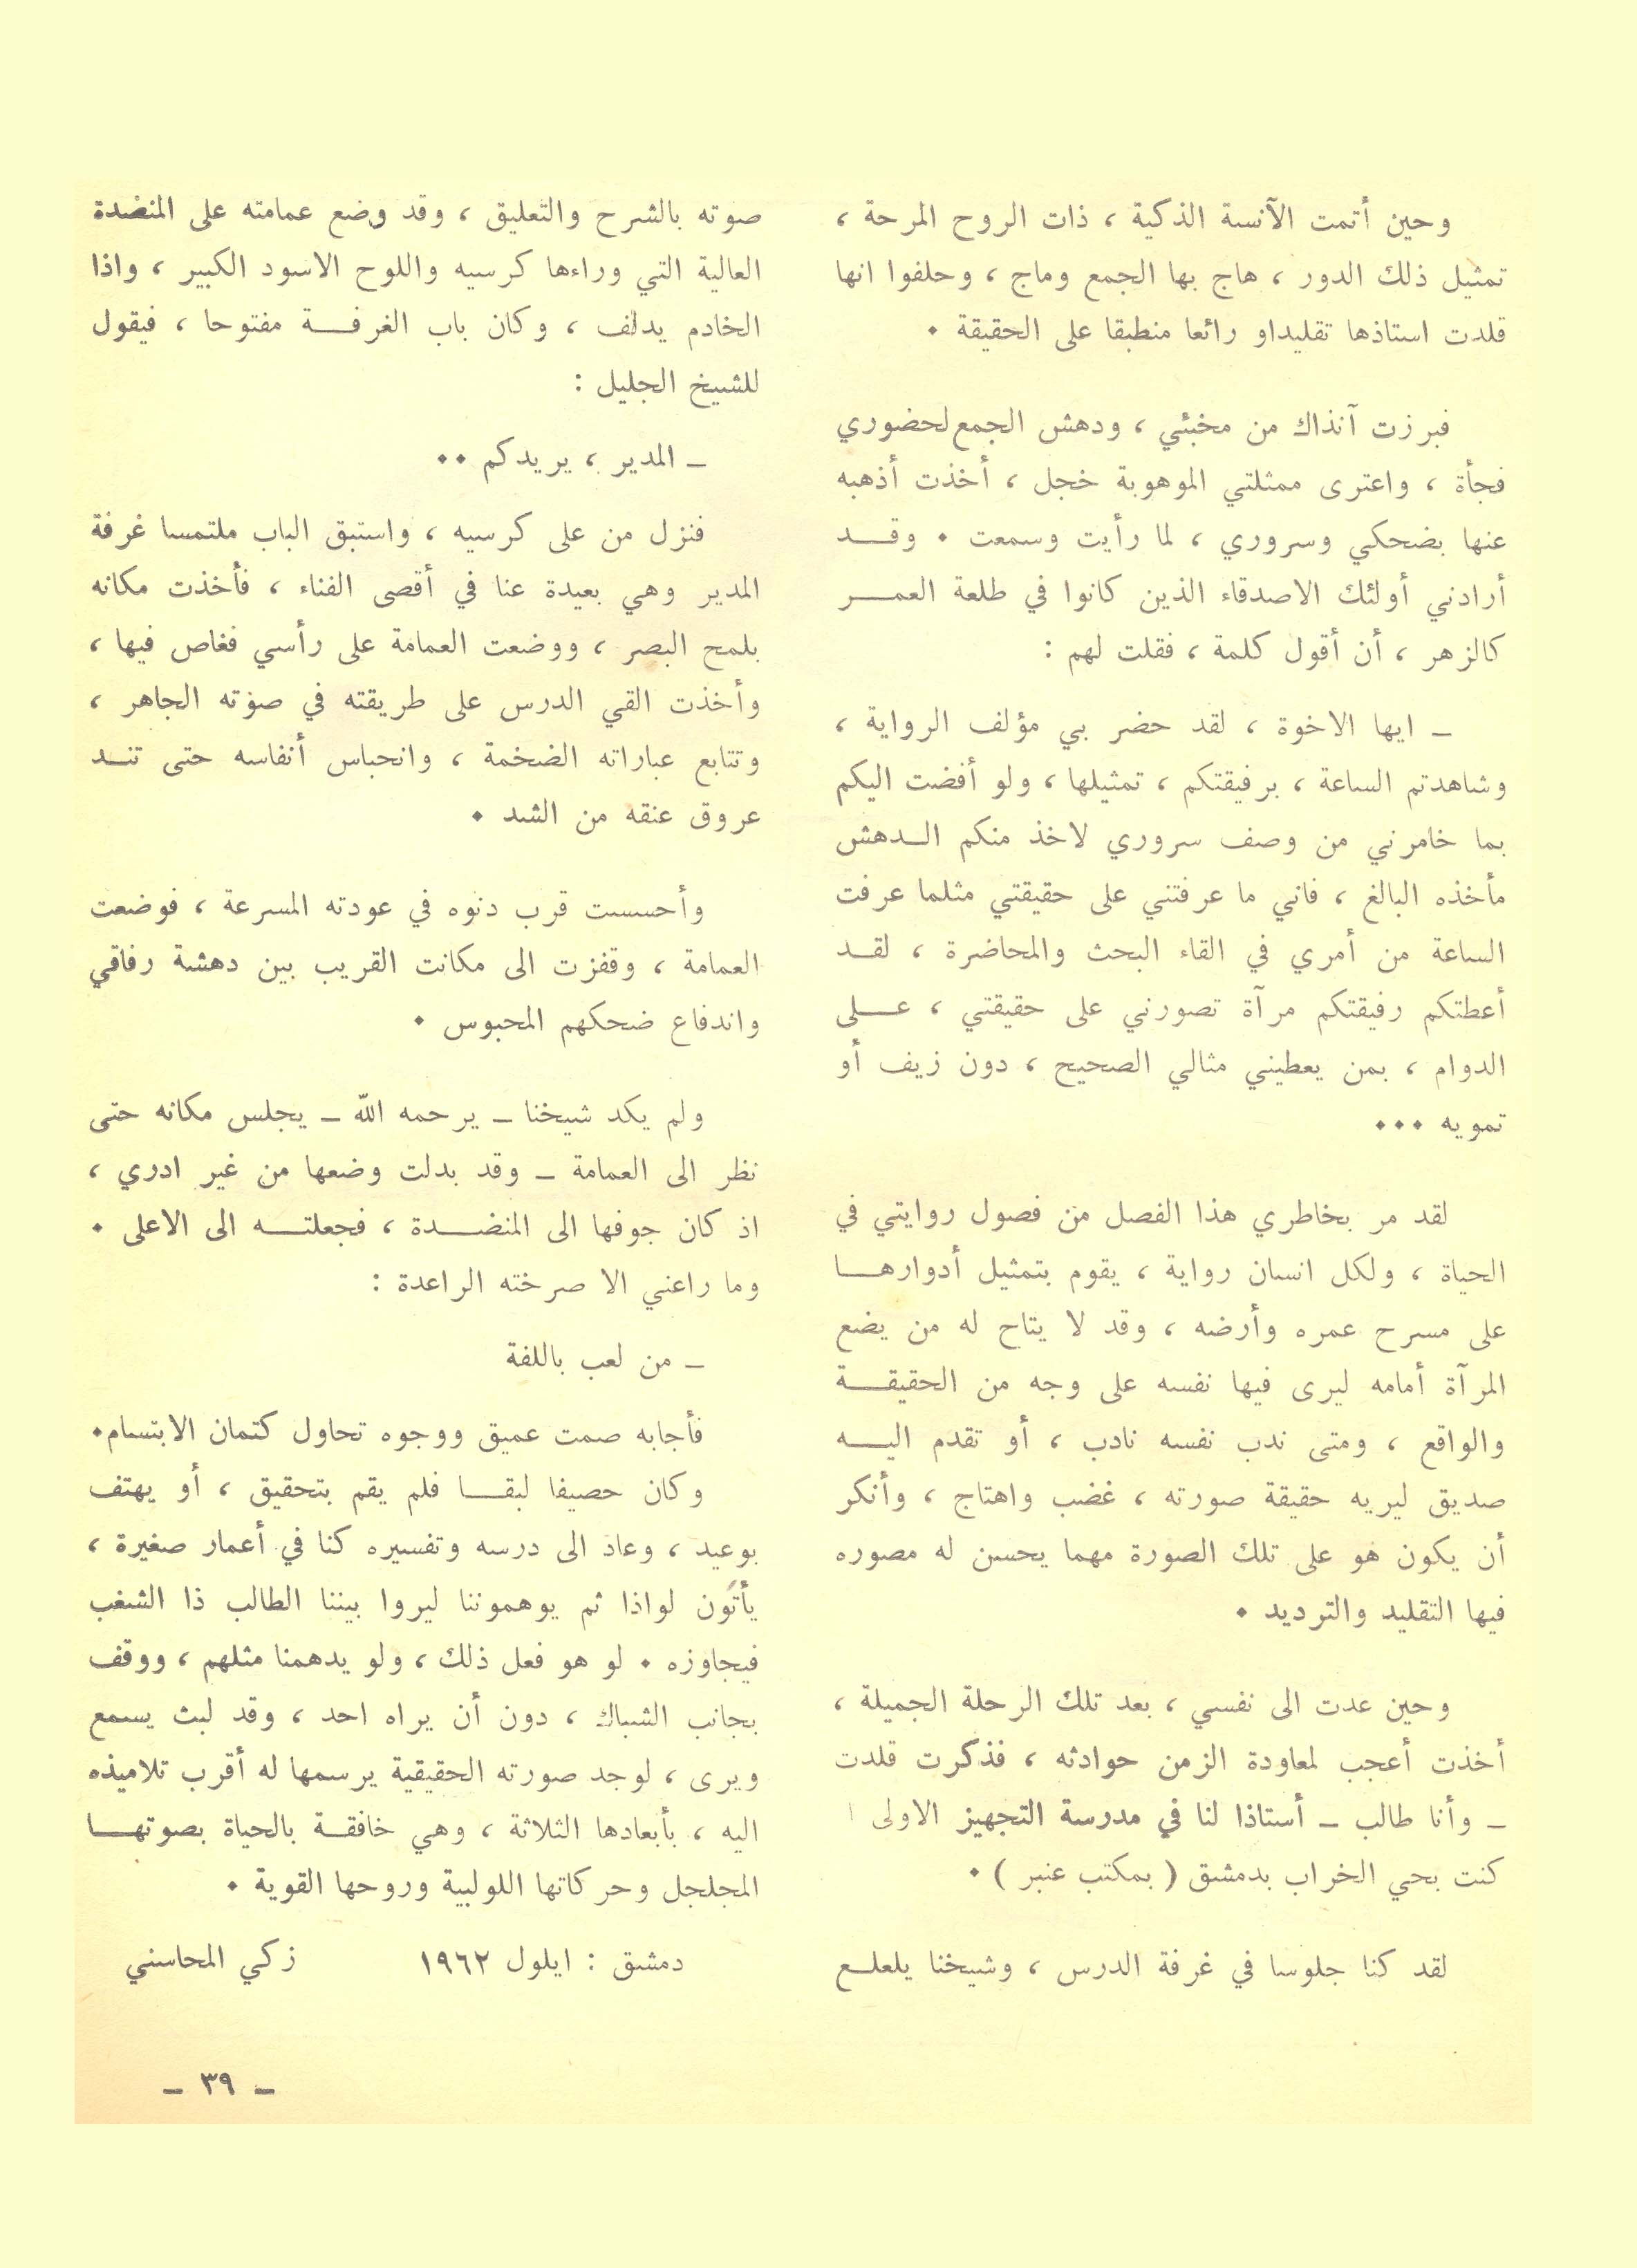 وحين أتمت الآنسة الذكية ، ذات الروح المرحة ،
تمثيل ذلك الدور ، هاج بها الجمع وماج ، وحلفوا انها
قلدت استاذها تقليداو رائعا منطبقا على الحقيقة .
فبرزت آنذاك من مخبئي ، ودهش الجمع لحضوري
فجأة ، واعترى ممثلتي الموهوبة خجل ، أخذت أذهبه
عنها بضحكي وسروري ، لما رأيت وسمعت . وقد
أرادني أولئك الاصدقاء الذين كانوا في طلعة العمر
كالزهر ، أن أقول كلمة ، فقلت لهم :
ـ ايها الاخوة ، لقد حضر بي مؤلف الرواية ،
وشاهدتم الساعة ، برفيقتكم ، تمثيلها ، ولو أفضت اليكم
بما خامرني من وصف سروري لاخذ منكم الدهش
مأخذه البالغ ، فاني ما عرفتني على حقيقتي مثلما عرفت
الساعة من أمري في القاء البحث والمحاضرة ، لقد
أعطتكم رفيقتكم مرآة تصورني على حقيقتي ، على
الدوام ، بمن يعطيني مثالي الصحيح ، دون زيف أو
تمويه ...
لقد مر بخاطري هذا الفصل من فصول روايتي في
الحياة ، ولكل انسان رواية ، يقوم بتمثيل أدوارها
على مسرح عمره وأرضه ، وقد لا يتاح له من يضع
المرآة أمامه ليرى فيها نفسه على وجه من الحقيقة
والواقع ، ومتى ندب نفسه نادب ، أو تقدم اليه
صديق ليريه حقيقة صورته ، غضب واهتاج ، وأنكر
أن يكون هو على تلك الصورة مهما يحسن له مصوره
فيها التقليد والترديد .
وحين عدت الى نفسي ، بعد تلك الرحلة الجميلة ،
أخذت أعجب لمعاودة الزمن حوادثه ، فذكرت قلدت
ـ وأنا طالب ـ أستاذا لنا في مدرسة التجهيز الاولى
كنت بحي الخراب بدمشق ( بمكتب عنبر ) .
لقد كنا جلوسا في غرفة الدرس ، وشيخنا يلعلع
صوته بالشرح والتعليق ، وقد وضع عمامته على المنضدة
العالية التي وراءها كرسيه واللوح الاسود الكبير ، واذا
الخادم يدلف ، وكان باب الغرفة مفتوحا ، فيقول
للشيخ الجليل :
ـ المدير ، يريدكم ..
فنزل من على كرسيه ، واستبق الباب ملتمسا غرفة
المدير وهي بعيدة عنا في أقصى الفناء ، فأخذت مكانه
بلمح البصر ، ووضعت العمامة على رأسي فغاص فيها ،
وأخذت القي الدرس على طريقته في صوته الجاهر ،
وتتابع عباراته الضخمة ، وانحباس أنفاسه حتى تند
عروق عنقه من الشد .
وأحسست قرب دنوه في عودته المسرعة ، فوضعت
العمامة ، وقفزت الى مكانت القريب بين دهشة رفاقي
واندفاع ضحكهم المحبوس .
ولم يكد شيخنا ـ يرحمه الله ـ يجلس مكانه حتى
نظر الى العمامة ـ وقد بدلت وضعها من غير ادري ،
اذ كان جوفها الى المنضدة ، فجعلته الى الاعلى .
وما راعني الا صرخته الراعدة :
ـ من لعب باللفة
فأجابه صمت عميق ووجوه تحاول كتمان الابتسام.
وكان حصيفا لبقا فلم يقم بتحقيق ، أو يهتف
بوعيد ، وعاد الى درسه وتفسيره كنا في أعمار صغيرة ،
يأتون لواذا ثم يوهموننا ليروا بيننا الطالب ذا الشغب
فيجاوزه . لو هو فعل ذلك ، ولو يدهمنا مثلهم ، ووقف
بجانب الشباك ، دون أن يراه احد ، وقد لبث يسمع
ويرى ، لوجد صورته الحقيقية يرسمها له أقرب تلاميذه
اليه ، بأبعادها الثلاثة ، وهي خافقة بالحياة بصوتها
المجلجل وحركاتها اللولبية وروحها القوية .
دمشق : ايلول ١٩٦٢ زكي المحاسني
ـ ٣٩ ـ